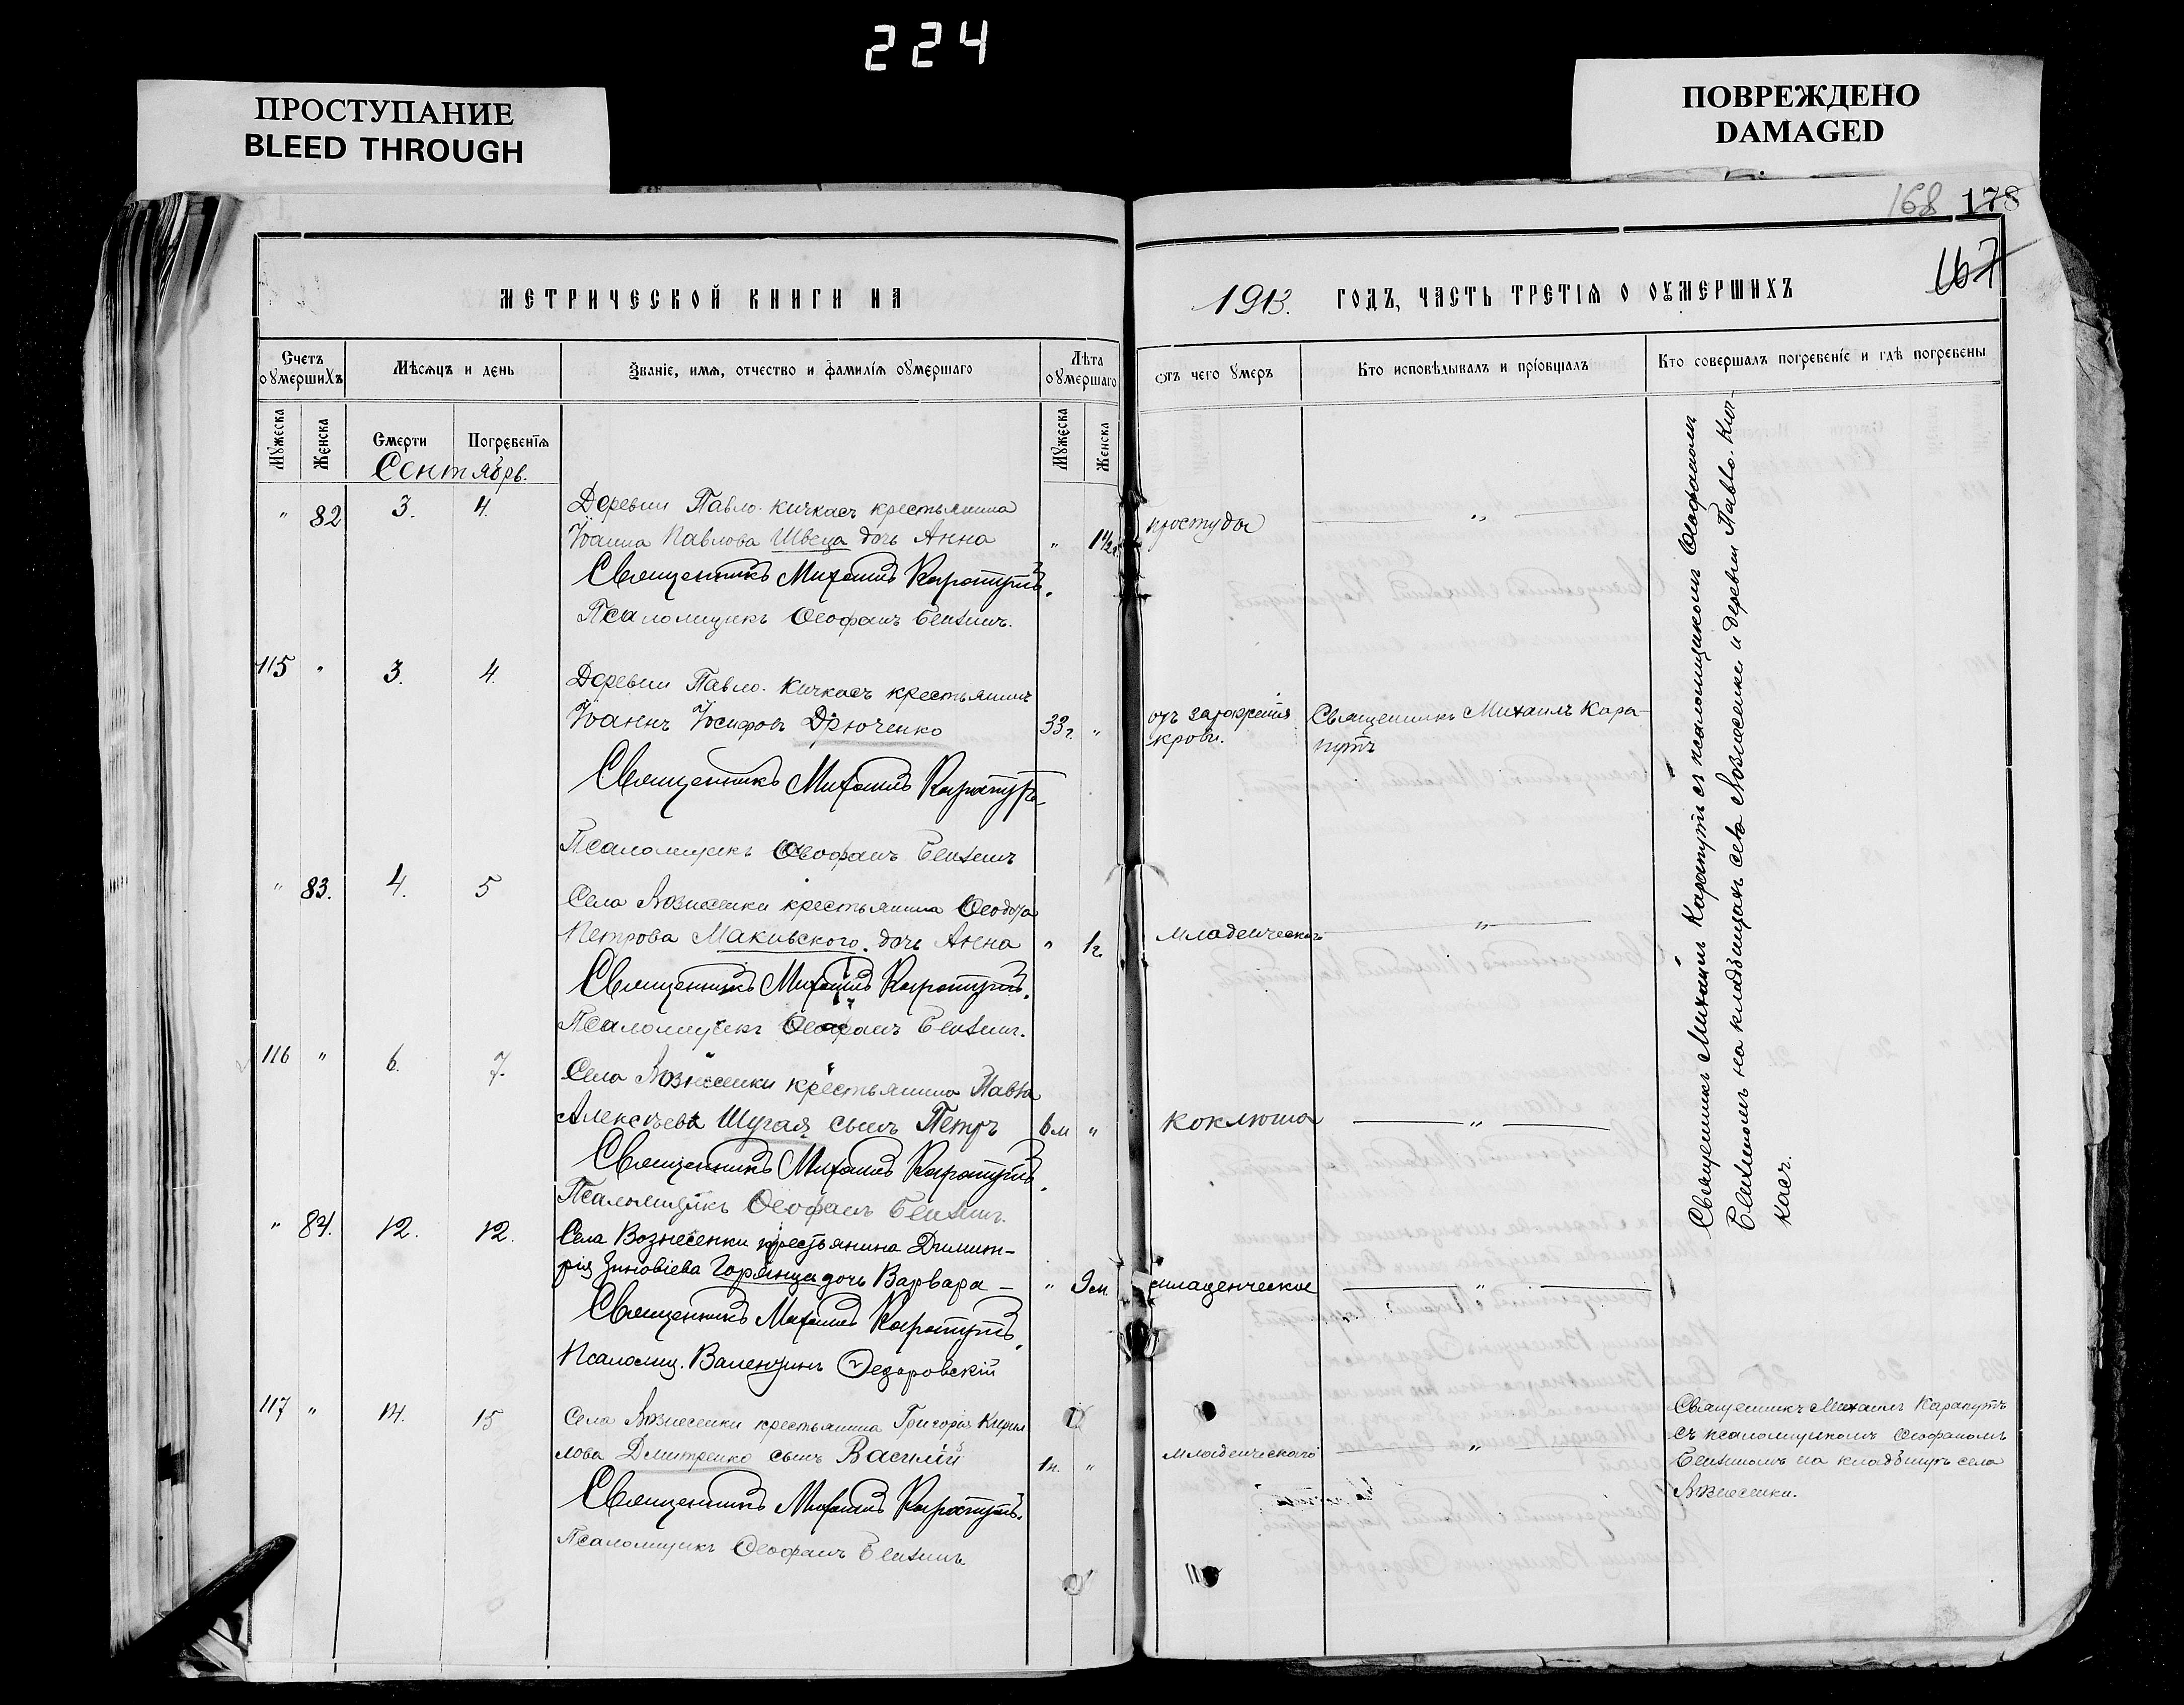 224
ПРОСТУПАНИЕ
BLEED THROUGH
ПОВРЕЖДЕНО
DAMAGED
168 178
167
МЕТРИЧЕСКОЙ КНИГИ НА
1913. ГОДЪ, ЧАСТЬ ТРЕТІѦ О ОУМЕРШИХЪ
Счетъ оумершихъ
Мѣсяцъ и день
Званіе, имя, отчество и фамилія оумершаго
Лѣта оумершаго
Отъ чего умеръ
Кто исповѣдывалъ и пріобщалъ
Кто совершалъ погребеніе и гдѣ погребены
Мужеска
Женска
Смерти
Погребенія
Мужеска
Женска
Сентябрь.
" 82 3. 4.
Деревни Павло-Кичкасъ крестьянина
Іоанна Павлова Швеца дочь Анна " 1½ г. простуды "
Священникъ Михаилъ Карапутъ.
Псаломщикъ Ѳеофанъ
115 " 3. 4.
Деревни Павло-Кичкасъ крестьянинъ
Іоаннъ Іосифовъ Дрюченко 33 г. " отъ зараженія крови. Священникъ Михаилъ Кара-
путъ
Священникъ Михаилъ Карапутъ
Псаломщикъ Ѳеофанъ
" 83. 4. 5
Села Вознесенки крестьянина Ѳеодора
Петрова Маковского дочь Анна " 1 г. младенческаго "
Священникъ Михаилъ Карапутъ.
Псаломщикъ Ѳеофанъ
116 " 6. 7.
Села Вознесенки крестьянина Павла
Алексѣева Шугая сынъ Петръ 6 м " коклюша "
Священникъ Михаилъ Карапутъ.
Псаломщикъ Ѳеофанъ
" 84. 12. 12.
Села Вознесенки крестьянина Димит-
рія Зиновіева Горянца дочь Варвара " 9 м. младенческое "
Священникъ Михаилъ Карапутъ.
Псаломщ. Валентинъ Ѳедоровскій
117 " 14. 15
Села Вознесенки крестьянина Григорія Кирил
лова Дмитренко сынъ Василій " младенческаго "
Священникъ Михаилъ Карапутъ.
Псаломщикъ Ѳеофанъ
Священникъ Михаилъ Карапутъ съ псаломщикомъ Ѳеофаномъ
на кладбищахъ села Вознесенки и деревни Павло-Кич-
касъ.
Священникъ Михаилъ Карапутъ
съ псаломщикомъ Ѳеофаномъ
на кладбищѣ села
Вознесенки.